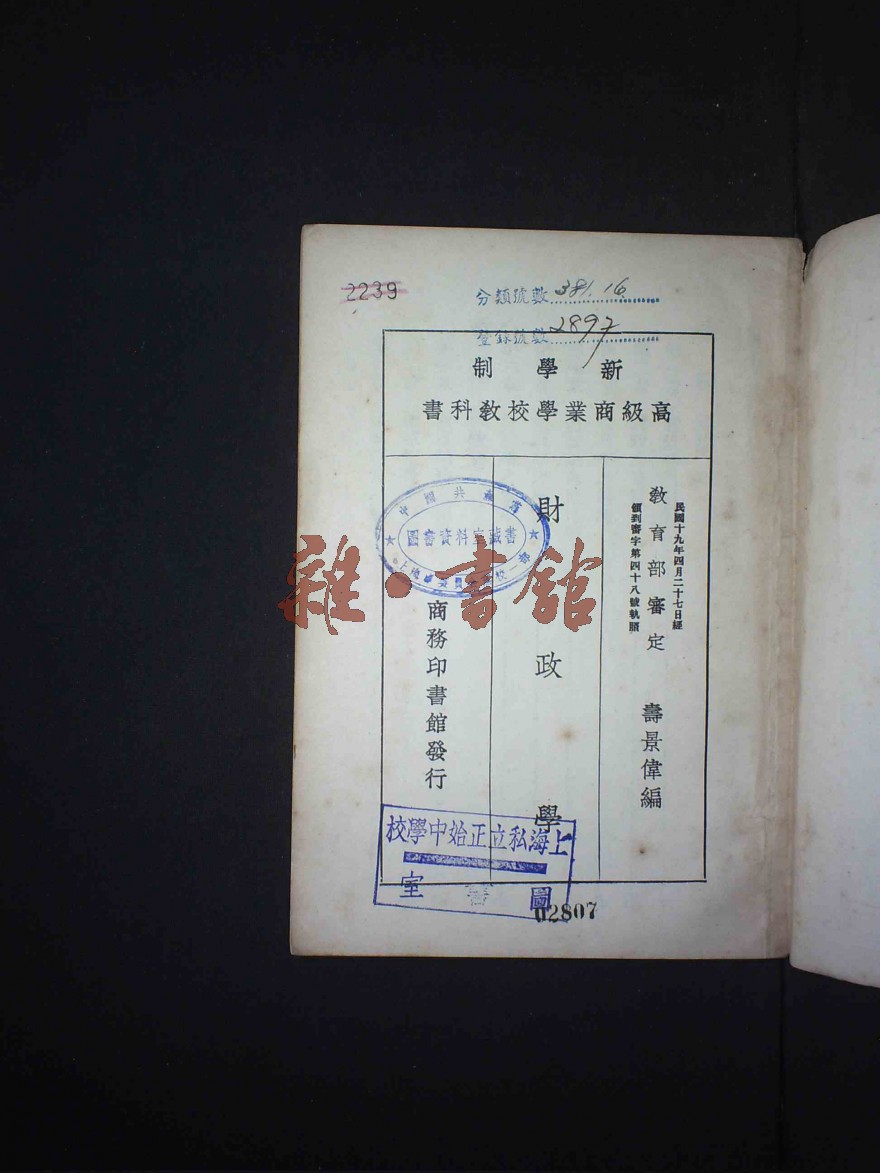 2239
分類號數 381.16
登錄號數 2897
新學制
高級商業學校教科書
民國十九年四月二十七日經
領到審字第四十八號執照
教育部審定
壽景偉編
財政學
商務印書館發行
中國共產黨
圖書資料室藏書
上海私立正始中學校
圖書室
02807
雜·書館